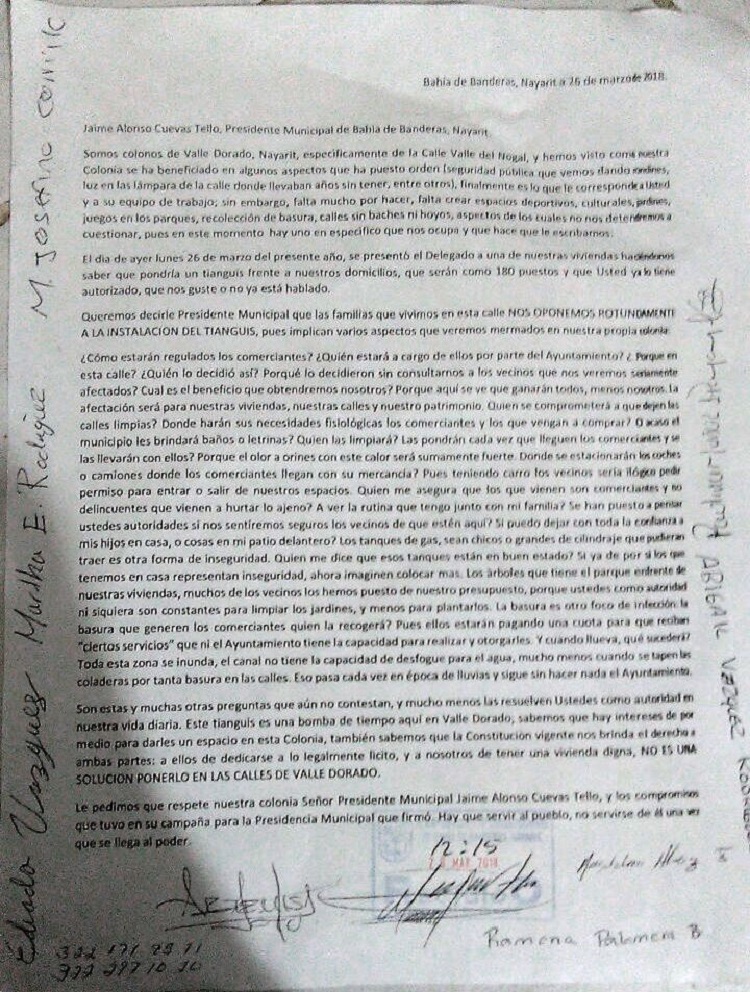 Bahía de Banderas, Nayarit a 26 de marzo de 2018.
Jaime Alonso Cuevas Tello, Presidente Municipal de Bahía de Banderas, Nayarit
Somos colonos de Valle Dorado, Nayarit, específicamente de la Calle Valle del Nogal, y hemos visto como nuestra
Colonia se ha beneficiado en algunos aspectos que ha puesto orden (seguridad pública que vemos dando rondines,
luz en las lámpara de la calle donde llevaban años sin tener, entre otros), finalmente es lo que le corresponde a Usted
y a su equipo de trabajo; sin embargo, falta mucho por hacer, falta crear espacios deportivos, culturales, jardines,
juegos en los parques, recolección de basura, calles sin baches ni hoyos, aspectos de los cuales no nos detendremos a
cuestionar, pues en este momento hay uno en específico que nos ocupa y que hace que le escribamos.
El día de ayer lunes 26 de marzo del presente año, se presentó el Delegado a una de nuestras viviendas haciéndonos
saber que pondría un tianguis frente a nuestros domicilios, que serán como 180 puestos y que Usted ya lo tiene
autorizado, que nos guste o no ya está hablado.
Queremos decirle Presidente Municipal que las familias que vivimos en esta calle NOS OPONEMOS ROTUNDAMENTE
A LA INSTALACION DEL TIANGUIS, pues implican varios aspectos que veremos mermados en nuestra propia colonia:
¿Cómo estarán regulados los comerciantes? ¿Quién estará a cargo de ellos por parte del Ayuntamiento? ¿ Porque en
esta calle? ¿Quién lo decidió así? Porqué lo decidieron sin consultarnos a los vecinos que nos veremos seriamente
afectados? Cual es el beneficio que obtendremos nosotros? Porque aquí se ve que ganarán todos, menos nosotros. La
afectación será para nuestras viviendas, nuestras calles y nuestro patrimonio. Quien se comprometerá a que dejen las
calles limpias? Donde harán sus necesidades fisiológicas los comerciantes y los que vengan a comprar? O acaso el
municipio les brindará baños o letrinas? Quien las limpiará? Las pondrán cada vez que lleguen los comerciantes y se
las llevarán con ellos? Porque el olor a orines con este calor será sumamente fuerte. Donde se estacionarán los coches
o camiones donde los comerciantes llegan con su mercancía? Pues teniendo carro los vecinos sería ilógico pedir
permiso para entrar o salir de nuestros espacios. Quien me asegura que los que vienen son comerciantes y no
delincuentes que vienen a hurtar lo ajeno? A ver la rutina que tengo junto con mi familia? Se han puesto a pensar
ustedes autoridades si nos sentiremos seguros los vecinos de que estén aquí? Si puedo dejar con toda la confianza a
mis hijos en casa, o cosas en mi patio delantero? Los tanques de gas, sean chicos o grandes de cilindraje que pudieran
traer es otra forma de inseguridad. Quien me dice que esos tanques están en buen estado? Si ya de por si los que
tenemos en casa representan inseguridad, ahora imaginen colocar mas. Los árboles que tiene el parque enfrente de
nuestras viviendas, muchos de los vecinos los hemos puesto de nuestro presupuesto, porque ustedes como autoridad
ni siquiera son constantes para limpiar los jardines, y menos para plantarlos. La basura es otro foco de infección: la
basura que generen los comerciantes quien la recogerá? Pues ellos estarán pagando una cuota para que reciban
"ciertos servicios" que ni el Ayuntamiento tiene la capacidad para realizar y otorgarles. Y cuando llueva, qué sucederá?
Toda esta zona se inunda, el canal no tiene la capacidad de desfogue para el agua, mucho menos cuando se tapen las
coladeras por tanta basura en las calles. Eso pasa cada vez en época de lluvias y sigue sin hacer nada el Ayuntamiento.
Son estas y muchas otras preguntas que aún no contestan, y mucho menos las resuelven Ustedes como autoridad en
nuestra vida diaria. Este tianguis es una bomba de tiempo aquí en Valle Dorado, sabemos que hay intereses de por
medio para darles un espacio en esta Colonia, también sabemos que la Constitución vigente nos brinda el derecho a
ambas partes: a ellos de dedicarse a lo legalmente lícito, y a nosotros de tener una vivienda digna, NO ES UNA
SOLUCION PONERLO EN LAS CALLES DE VALLE DORADO.
Le pedimos que respete nuestra colonia Señor Presidente Municipal Jaime Alonso Cuevas Tello, y los compromisos
que tuvo en su campaña para la Presidencia Municipal que firmó. Hay que servir al pueblo, no servirse de él una vez
que se llega al poder.
12:15
MAR. 2018
Ramona Palomera B
Eduardo Vazquez Martha E. Rodriguez M. Josefina
ABIGAIL VAZQUEZ